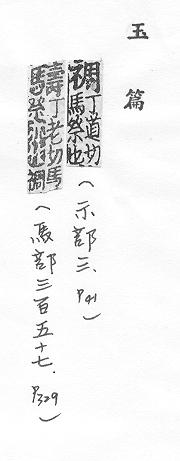 玉篇
禂丁道切馬祭也(示部三.P41)
丁老切馬祭禂(馬部三百五十七.P329)